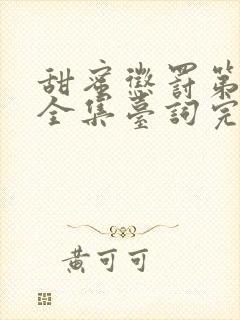 甜蜜懲罰第
全集臺詞完
黃可可